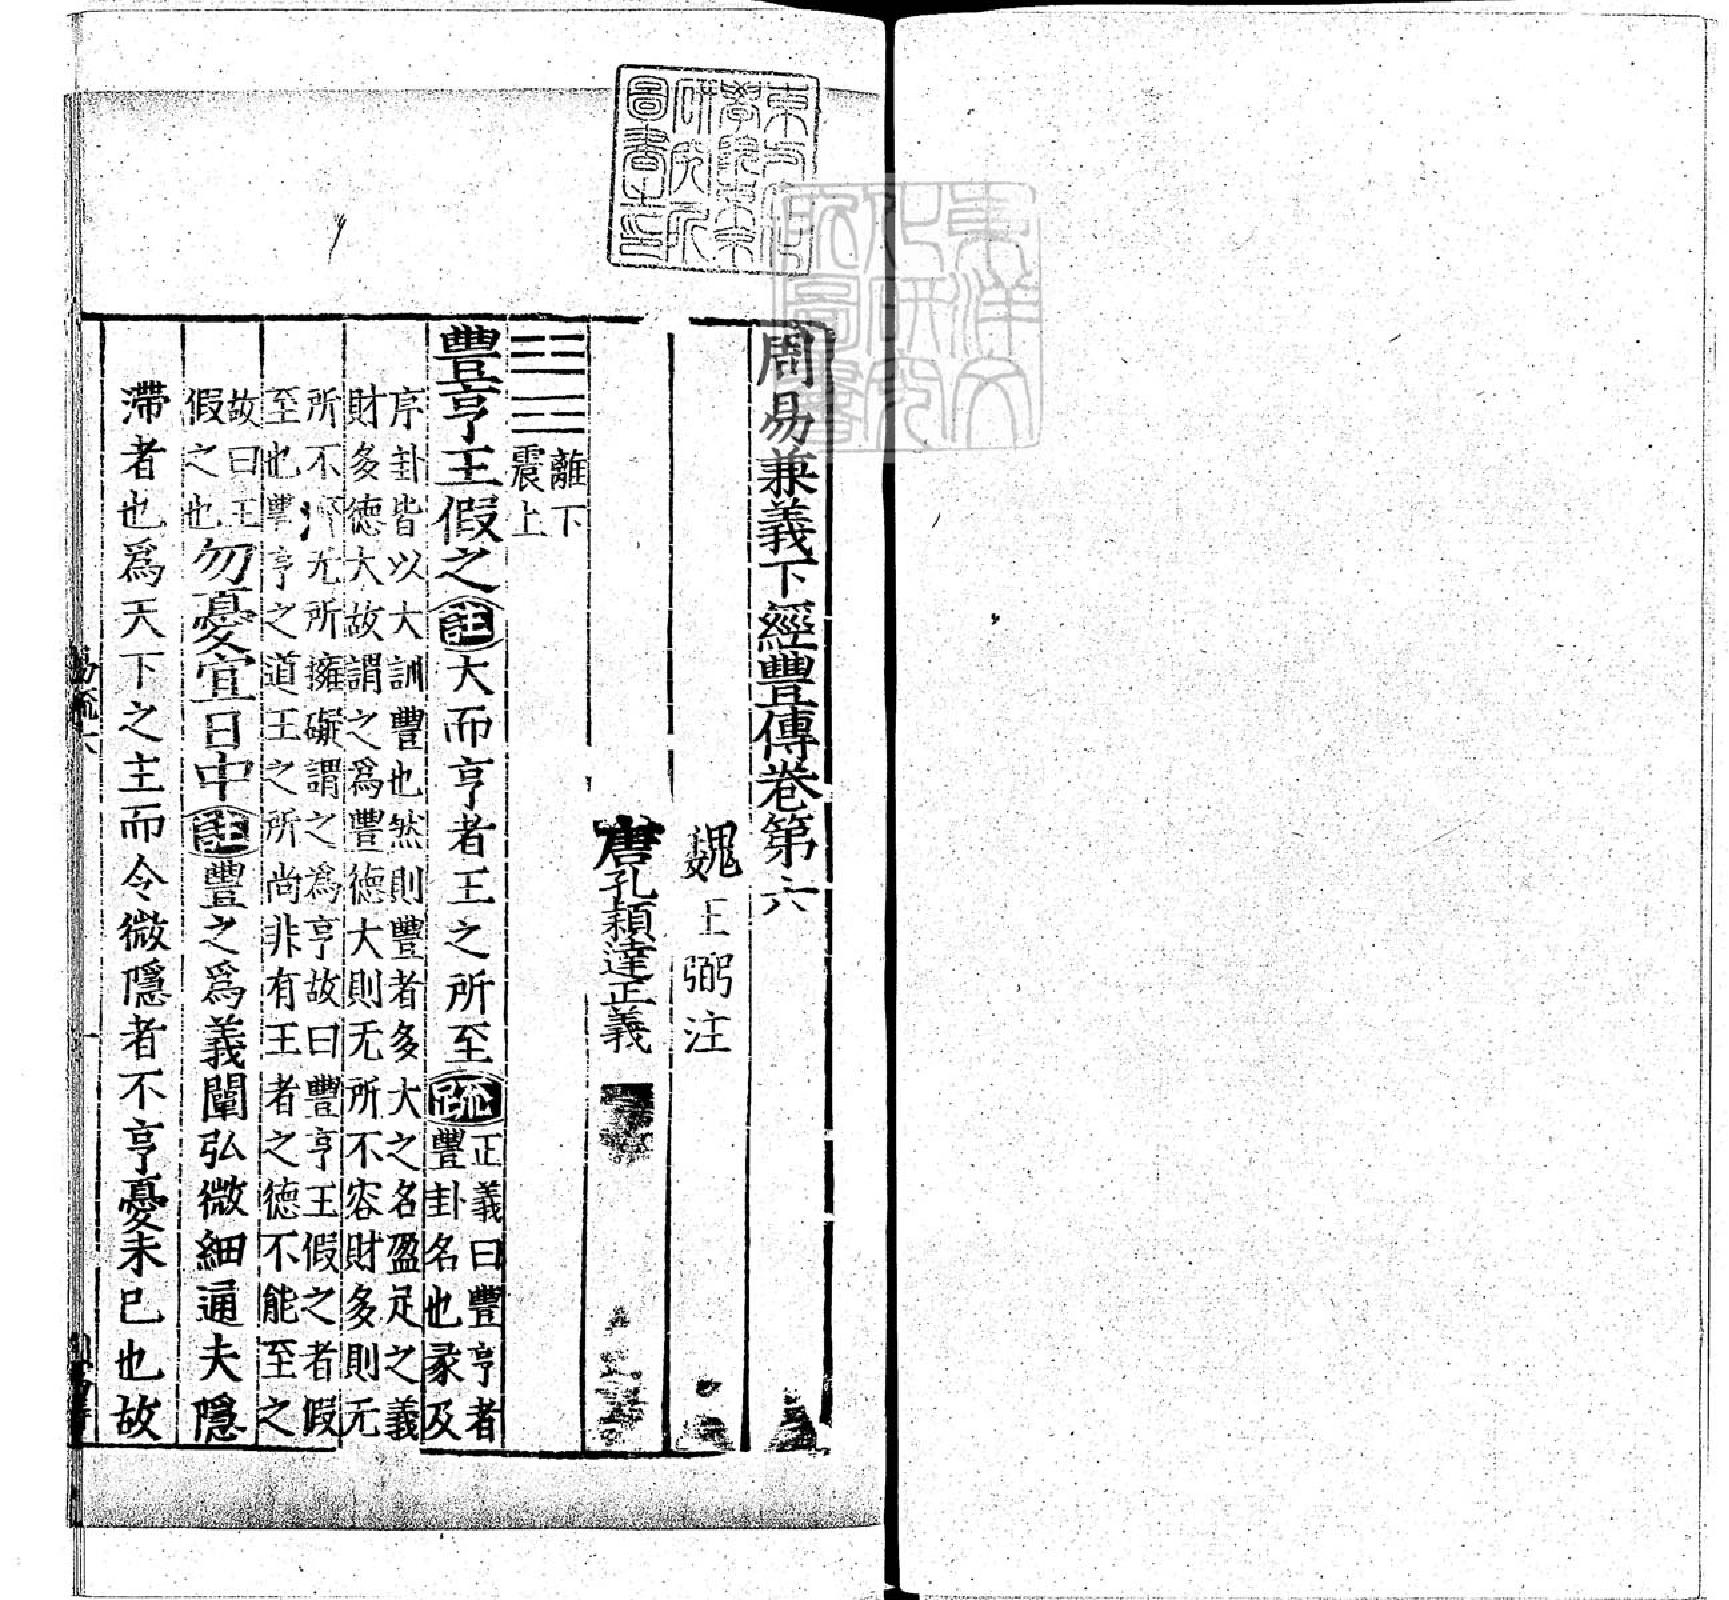 周易兼義下經豐傳卷第六
魏王弼注
唐孔穎達正義
離下
震上
豐亨王假之註大而亨者王之所至疏正義曰豐亨者
豐卦名也彖及
序卦皆以大訓豐也然則豐者多大之名盈足之義
財多德大故謂之爲豐德大則无所不容財多則无
所不濟无所擁礙謂之爲亨故曰豐亨王假之者假
至也豐亨之道王之所尚非有王者之德不能至之
故曰王
假之也勿憂宜日中註豐之爲義闡弘微細通夫隱
滯者也爲天下之主而令微隱者不亨憂未已也故
易疏六
一
東方文化學院東京研究所圖書之印
東洋文化研究所圖書